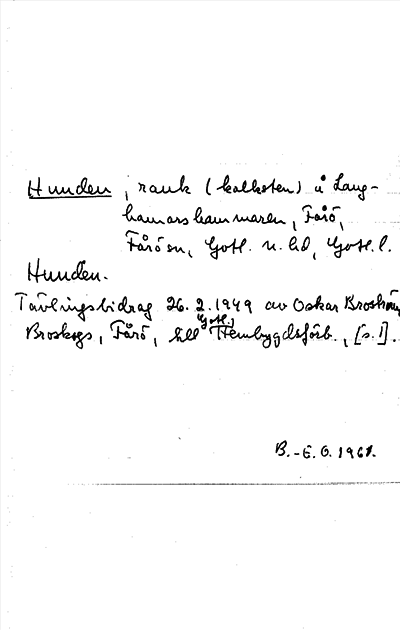 Hunden, rauk (kalksten) å Lang-
hamarshammaren, Fårö,
Fårö sn, Gotl. n. hd, Gotl. l.
Hunden.
Tävlingsbidrag 26. 2. 1949 av Oskar Broström,
Broskogs, Fårö, till Gotl. Hembygdsförb., [s. 1].
B.-E. O. 1961.